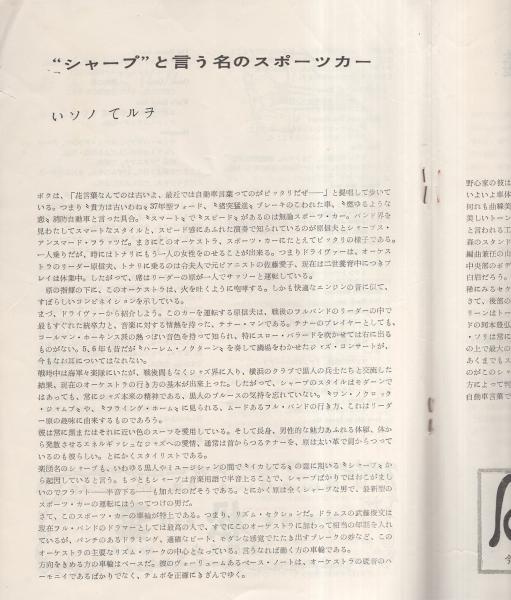 “シャープ”と言う名のスポーツカー
いソノ てルヲ
ボクは、「花言葉なんてのは古いよ、最近では自動車言葉ってのがピッタリだぜ——」と提唱して歩いて
いる。つまり〝貴方は古いわね〟37年型フォード、〝猪突猛進〟ブレーキのこわれた車、〝燃ゆるような
恋〟消防自動車と言った具合。〝スマート〟で〝スピード〟があるのは無論スポーツ・カー。バンド界を
見わたしてスマートなスタイルと、スピード感にあふれた演奏で知られているのが原信夫とシャープス・
アンスマード・フラッツだ。まさにこのオーケストラ、スポーツ・カーにたとえてピッタリの様子である。
一人乗りだが、時にはトナリにもう一人の女性をのせることが出来る。つまりドライヴァーは、オーケス
トラのリーダー原信夫、トナリに乗るのは台夫人で元ピアニストの佐藤愛子、現在は二世養育中につきプ
レイは休業中。したがって、席はリーダーの原が一人でサッソーと運転している。
原の指揮の下に、このオーケストラは、火を吐くように咆哮する。しかも快適なエンジンの音に似て、
すばらしいコンビネイションを示している。
まづ、ドライヴァーから紹介しよう。このカーを運転する原信夫は、戦後のフルバンドのリーダーの中で
最もすぐれた統率力と、音楽に対する情熱を持った、テナー・マンである。テナーのプレイヤーとしても、
コールマン・ホーキンス派の熱っぽい音色を持って知られ、特にスロー・バラードを吹かせては右に出る
ものがない。5,6年も昔だが〝ハーレム・ノクターン〟を奏して満場をわかせたジャズ・コンサートが、
今もなお耳についてはなれない。
戦時中は海軍々楽隊にいたが、戦後間もなくジャズ界に入り、横浜のクラブで黒人の兵士たちと交流した
結果、現在のオーケストラの行き方の基本が出来上った。したがって、シャープのスタイルはモダーンで
はあっても、常にジャズ本来の精神である、黒人のブルースの気持を忘れていない。〝ワン・ノクロック
・ジャムプ〟や、〝フライング・ホーム〟に見られる、ムードあるフル・バンドの行き方、これはリーダ
ー原の趣味に由来するものであろう。
彼は常に黒またはそれに近い色のスーツを愛用している。そして長身、男性的な魅力あふれる体躯、体か
ら発散させるエネルギッシュなジャズへの愛情、通常は首からつるテナーを、原は太い革で肩からつって
いるのも彼らしい。とにかくスタイリストである。
楽団名のシャープも、いわゆる黒人やミュージシャンの間で〝イカしてる〟の意に用いる〝シャープ〟か
ら起因していると言う。もっともシャープは音楽用語で半音上ることで、シャープばかりではおこがまし
いのでフラット——半音下る——も加えたのだそうである。とにかく原は全くシャープな男で、最新型の
スポーツ・カーの運転にはうってつけの男だ。
さて、このスポーツ・カーの車輪が特上である。つまり、リズム・セクションだ。ドラムスの武藤俊文は
現在フル・バンドのドラマーとしては最高の人で、すでにこのオーケストラに加わって相当の年期を入れ
ているが、パンチのあるドラミング、適確なビート、モダンな感覚でたたき出すブレークの妙など、この
オーケストラの主要なリズム・ワークの中心となっている。言うなれば動く方の車輪である。
方向をきめる方の車輪はベースだ。彼のヴォーリュームあるベース・ノートは、オーケストラの低音のハ
ーモニイであるばかりでなく、テムポを正確にきざんでゆく。
野心家の彼は
いよいよ車体
何れも曲線美
美しいトーン
と言われる工
森のスタンド
編曲兼任の山
中央部のボデ
白岩だろう。
稀にみるセク
さて、後部の
リーンはトー
ドの対本
・ソリは常に
の上で最大の
あくまでもス
のがこのシャ
方によって判
自動車言葉で